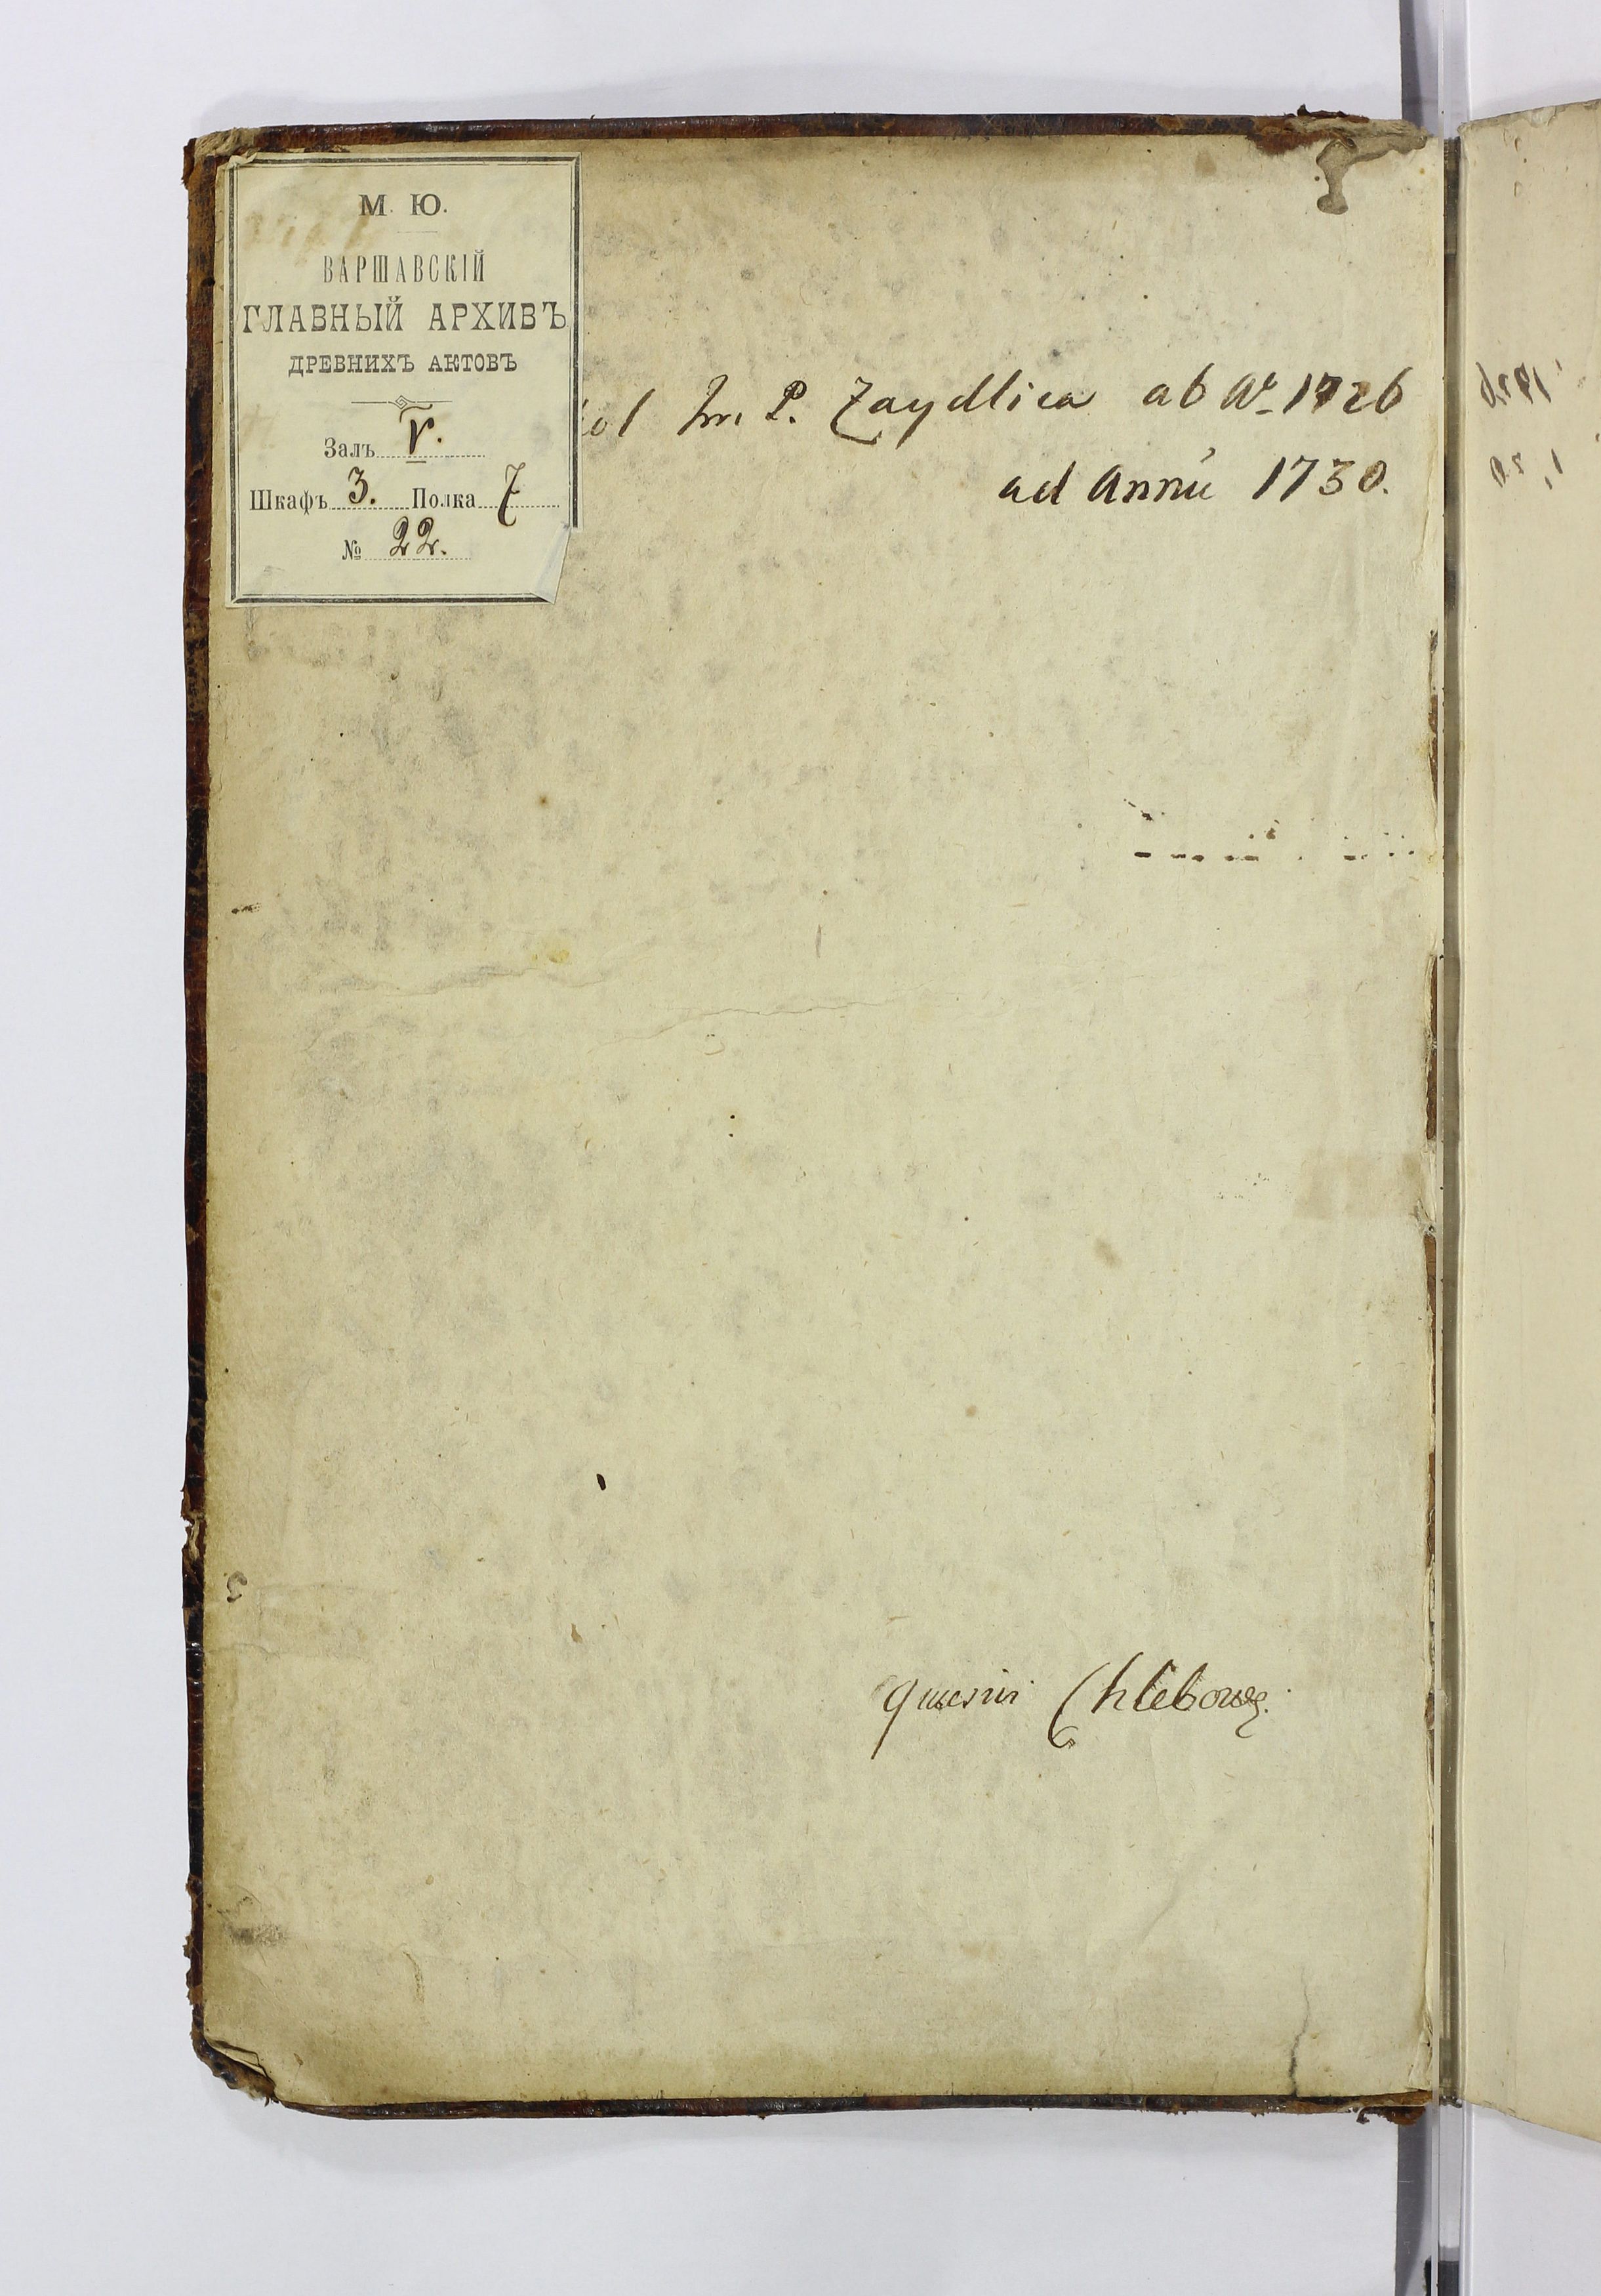 М. Ю.
ВАРШАВСКІЙ
ГЛАВНЫЙ АРХИВЪ
ДРЕВНИХЪ АКТОВЪ
Залъ V.
Шкафъ 3. Полка 7
№ 22.
P. Zaydlica ab Ao 1726
ad Annū 1730.
Chlebows.